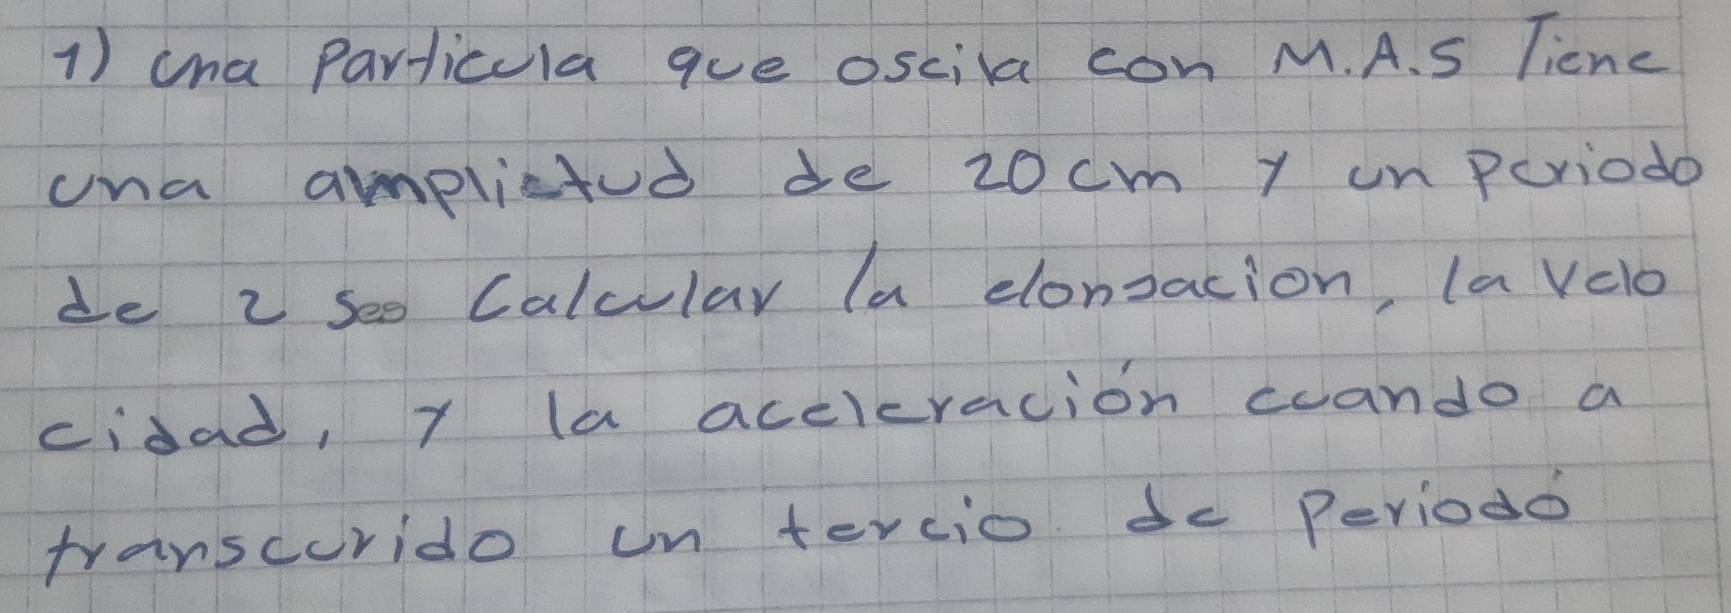 1) una particula que oscila con M.A.S Tiene
una amplictud de 20 cm y un periodo
de 2 seg Calcular la elongacion, la velo
cidad, y la aceleración cuando a
transcurido un tercio de Periodó